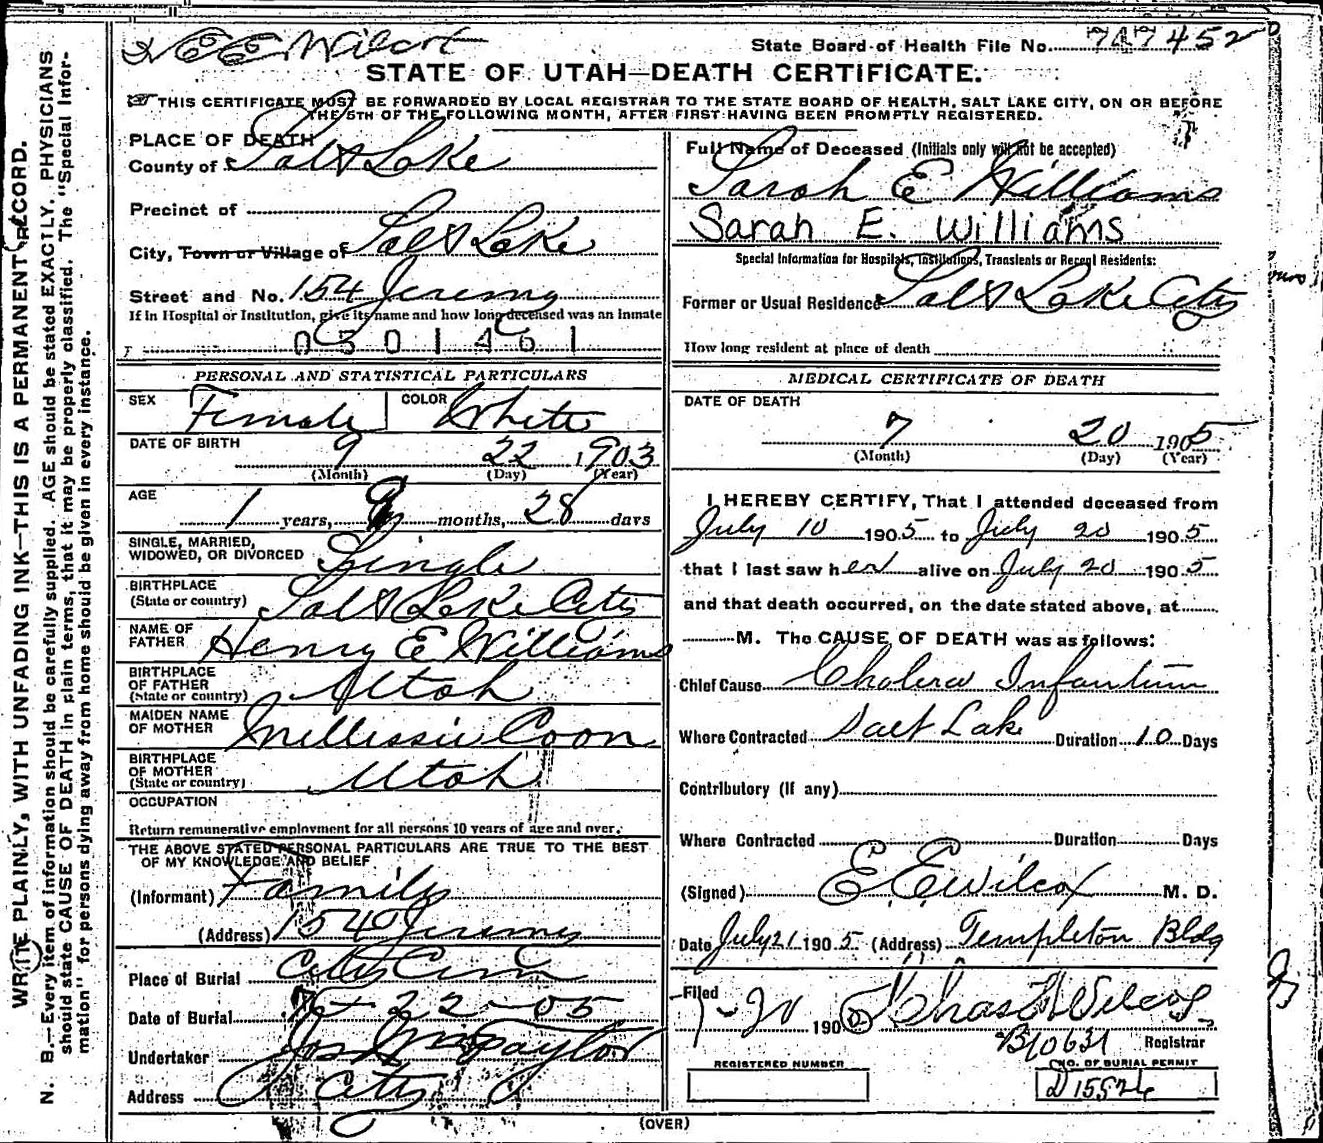 E E Wilcox
State Board of Health File No. 747452
STATE OF UTAH—DEATH CERTIFICATE.
THIS CERTIFICATE MUST BE FORWARDED BY LOCAL REGISTRAR TO THE STATE BOARD OF HEALTH, SALT LAKE CITY, ON OR BEFORE
THE 5TH OF THE FOLLOWING MONTH, AFTER FIRST HAVING BEEN PROMPTLY REGISTERED.
WRITE PLAINLY, WITH UNFADING INK—THIS IS A PERMANENT RECORD.
N. B.—Every item of information should be carefully supplied. AGE should be stated EXACTLY. PHYSICIANS
should state CAUSE OF DEATH in plain terms, that it may be properly classified. The "Special Infor-
mation" for persons dying away from home should be given in every instance.
PLACE OF DEATH
County of Salt Lake
Precinct of
City, Town or Village of Salt Lake
Street and No. 154 Jeremy
If in Hospital or Institution, give its name and how long deceased was an inmate
0501461
PERSONAL AND STATISTICAL PARTICULARS
SEX Female COLOR White
DATE OF BIRTH
9 22 1903
(Month) (Day) (Year)
AGE
1 years, 9 months, 28 days
SINGLE, MARRIED,
WIDOWED, OR DIVORCED Single
BIRTHPLACE
(State or country) Salt Lake City
NAME OF
FATHER Henry E Williams
BIRTHPLACE
OF FATHER
(State or country) Utah
MAIDEN NAME
OF MOTHER Mellissie Coon
BIRTHPLACE
OF MOTHER
(State or country) Utah
OCCUPATION
Return remunerative employment for all persons 10 years of age and over.
THE ABOVE STATED PERSONAL PARTICULARS ARE TRUE TO THE BEST
OF MY KNOWLEDGE AND BELIEF
(Informant) Family
(Address) 154 Jeremy
Place of Burial City Cem
Date of Burial 7-22-05
Undertaker Jos Wm Taylor
Address City
Full Name of Deceased (Initials only will not be accepted)
Sarah E Williams
Sarah E. Williams
Special Information for Hospitals, Institutions, Transients or Recent Residents:
Former or Usual Residence Salt Lake City
How long resident at place of death
MEDICAL CERTIFICATE OF DEATH
DATE OF DEATH
7 20 1905
(Month) (Day) (Year)
I HEREBY CERTIFY, That I attended deceased from
July 10 1905 to July 20 1905
that I last saw her alive on July 20 1905
and that death occurred, on the date stated above, at
M. The CAUSE OF DEATH was as follows:
Chief Cause Cholera Infantum
Where Contracted Salt Lake Duration 10 Days
Contributory (If any)
Where Contracted Duration Days
(Signed) E E Wilcox M. D.
Date July 21 1905 (Address) Templeton Bldg
Filed
7-20 190 Chas Wilcox
B10631 Registrar
REGISTERED NUMBER
NO. OF BURIAL PERMIT
D 15526
(OVER)